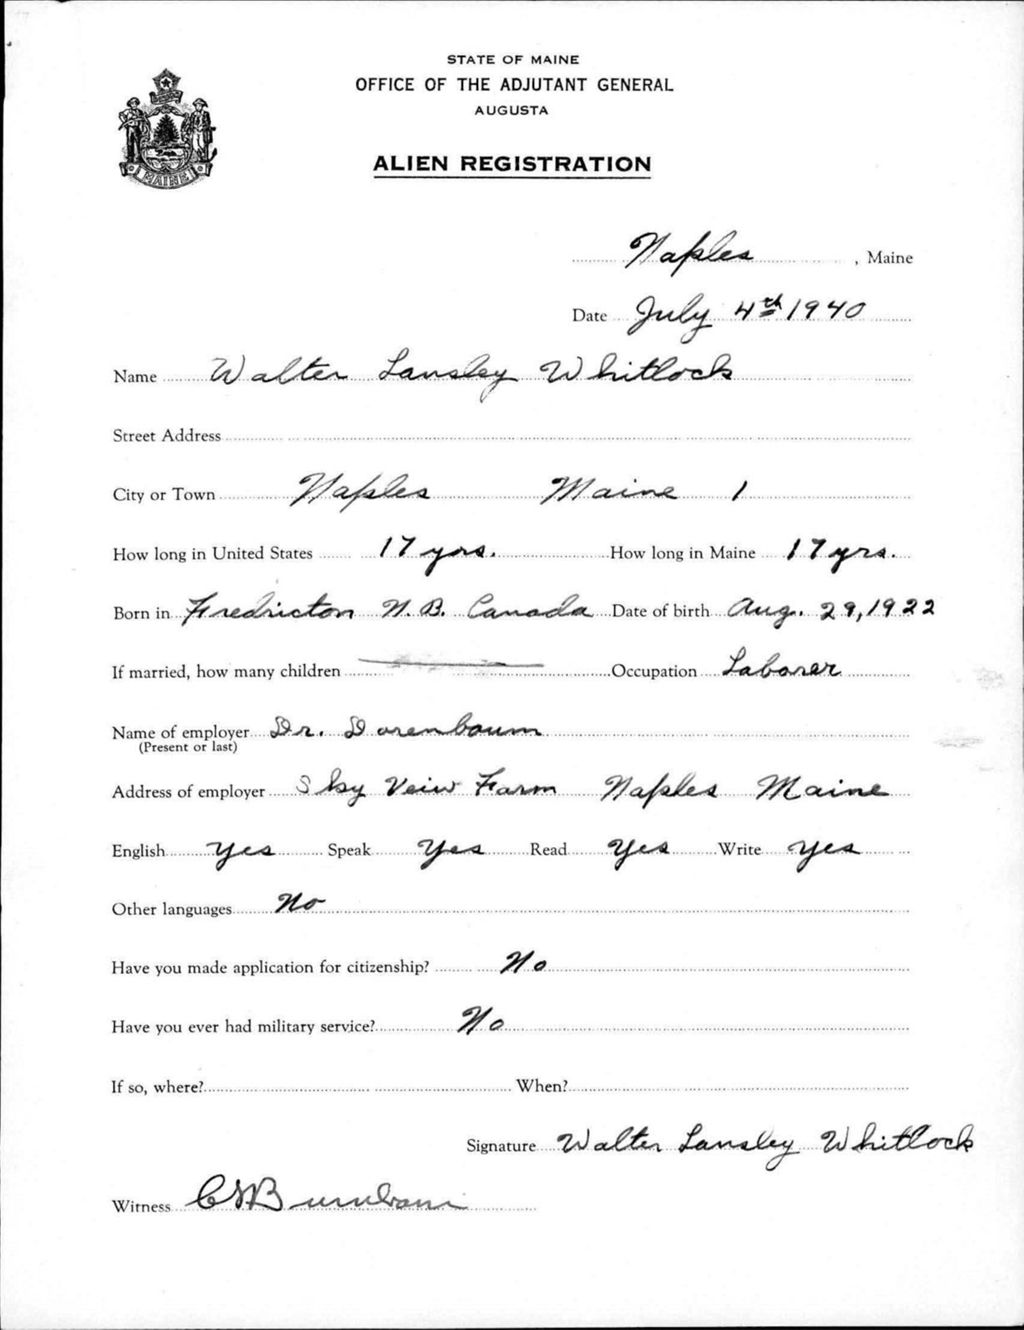 STATE OF MAINE
OFFICE OF THE ADJUTANT GENERAL
AUGUSTA
MAINE
ALIEN REGISTRATION
Naples, Maine
Date July 4th 1940
Name Walter Lansley Whitlock
Street Address
City or Town Naples Maine 1
How long in United States 17 yrs. How long in Maine 17 yrs.
Born in Fredricton N.B. Canada Date of birth Aug. 29, 1922
If married, how many children Occupation Laborer
Name of employer Dr. Dorenbaum
(Present or last)
Address of employer Sky Veiw Farm Naples Maine
English Yes Speak Yes Read Yes Write Yes
Other languages No
Have you made application for citizenship? No
Have you ever had military service? No
If so, where? When?
Signature Walter Lansley Whitlock
Witness